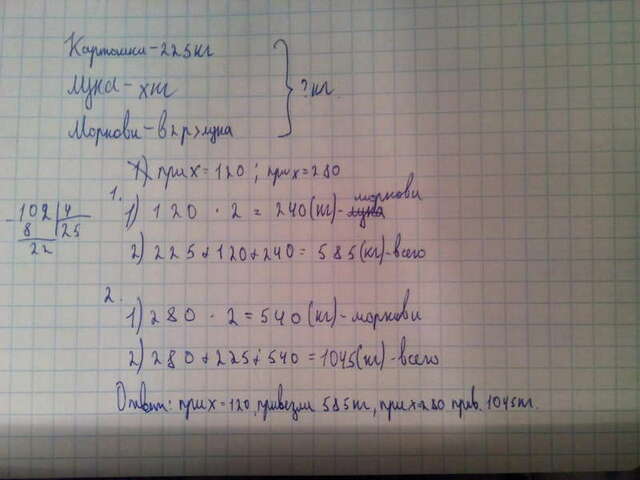 Картошки - 225 кг
Лука - x кг
Моркови - в 2 р > лука
? кг.
при x = 120 ; при x = 280
1.
1) 120 · 2 = 240 (кг) - моркови
2) 225 + 120 + 240 = 585 (кг) - всего
102 4
8 25
22
2.
1) 280 · 2 = 540 (кг) - моркови
2) 280 + 225 + 540 = 1045 (кг) - всего
Ответ: при x = 120, привезли 585 кг, при x = 280 прив. 1045 кг.